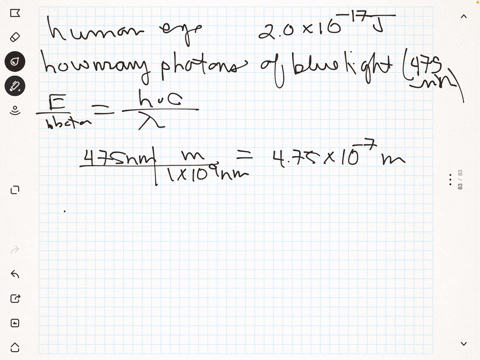 human eye 2.0 x 10^-17 J
how many photons of blue light (475 nm)
E/photon = h·c/λ
475nm | m / 1 x 10^9 nm = 4.75 x 10^-7 m